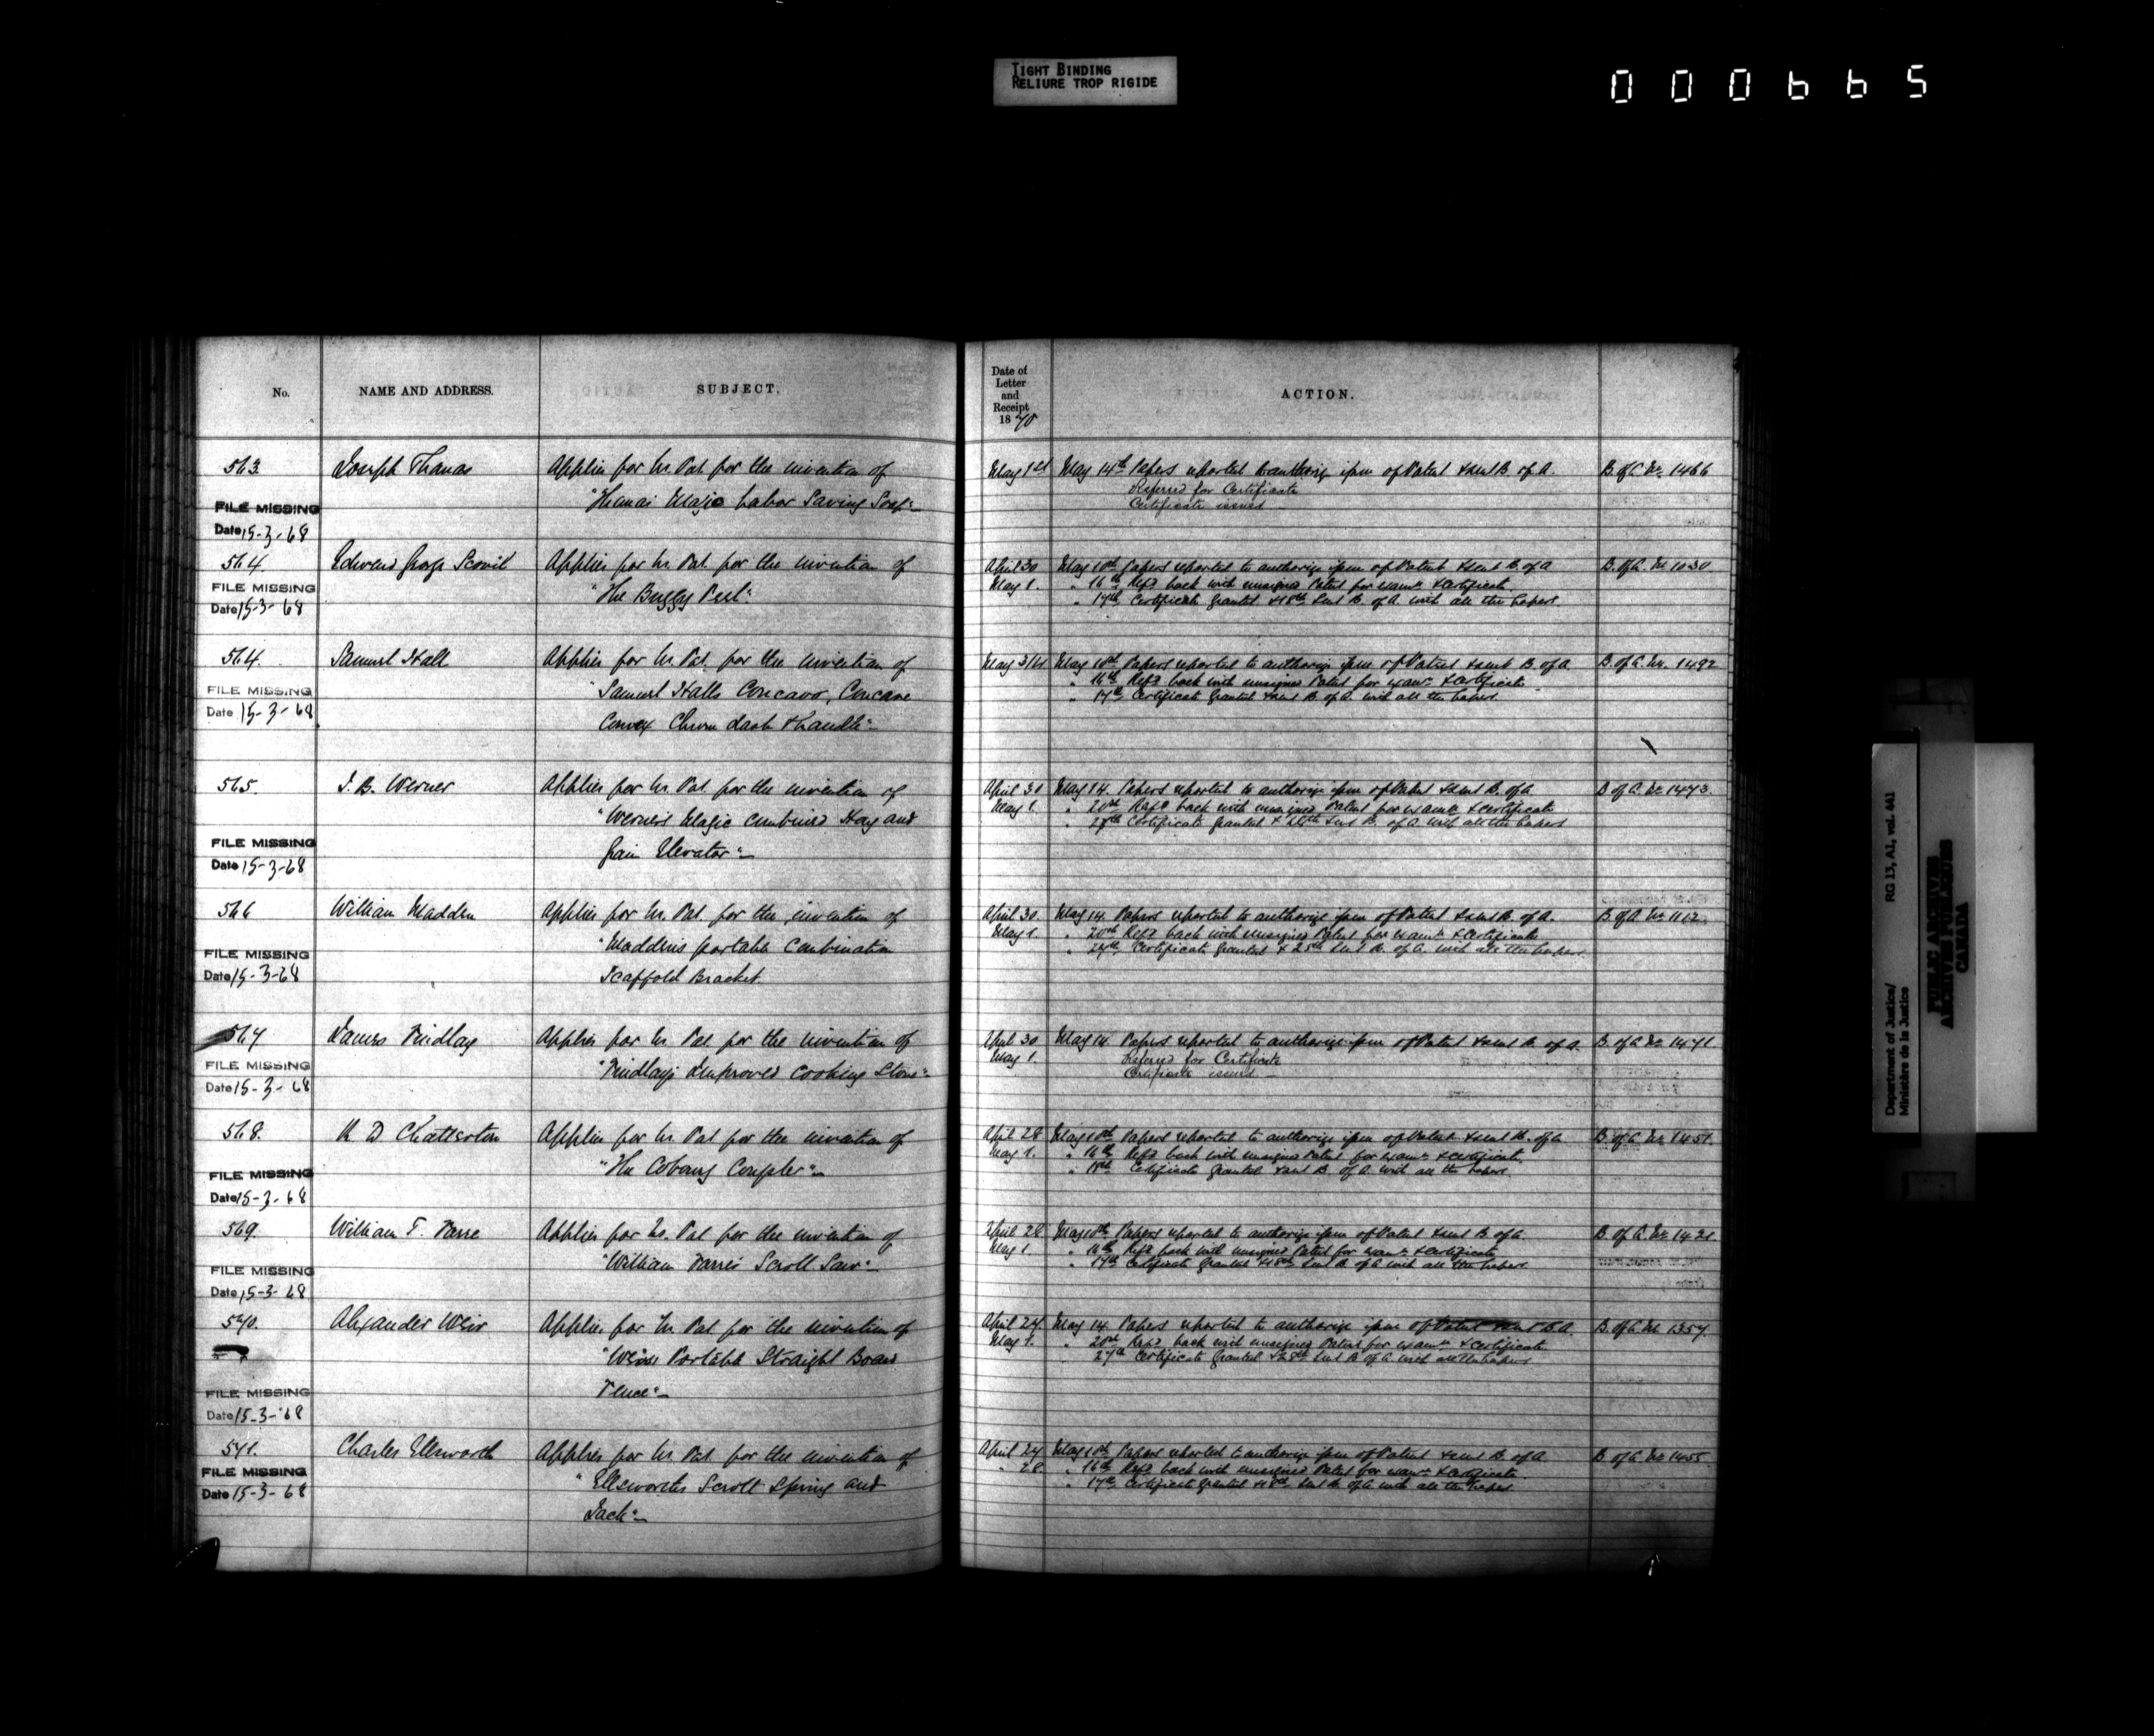 TIGHT BINDING
RELIURE TROP RIGIDE
000665
No.
NAME AND ADDRESS.
SUBJECT.
Date of
Letter
and
Receipt
1870
ACTION.
563. Joseph Thomas Applies for Ls. Pat. for the invention of May 1st May 14th Papers reported to authorize issue of Patent & sent B. of A. B. of A. No. 1466
Labor Saving Soap"
Referred for Certificate
Certificate issued
FILE MISSING
Date 15-3-68
564. Edward George Scovil Applies for Ls. Pat. for the invention of April 30 May 10th Papers reported to authorize issue of Patent & sent B. of A B. of A. No 1030
FILE MISSING
"The Buggy
May 1. " 16th Refd back with unsigned Patent for examn & certificate
Date 15-3-68
" 17th Certificate granted & 18th sent B. of A. with all the papers.
564. Samuel Hall Applies for Ls. Pat. for the invention of May 10th Papers reported to authorize issue of Patent & sent B. of A B. of A. No. 1492
FILE MISSING
"Samuel Halls Concavo, Concave
" 16th Refd back with unsigned Patent for examn & certificate
Date 15-3-68
" 17th Certificate granted & sent B. of A. with all the papers.
Convex Churn dash & handle"
565. J. B. Werner Applies for Ls. Pat. for the invention of April 30 May 14. Papers reported to authorize issue of Patent & sent B. of A B of A. No 1473.
"Werner's Magic combined Hay and
May 1. " 20th Refd back with unsigned Patent for examn & certificate
Certificate granted & sent B. of A. with all the papers
FILE MISSING
Grain Elevator"
Date 15-3-68
566 William Madden Applies for Ls. Pat. for the invention of April 30. May 14. Papers reported to authorize issue of Patent & sent B. of A. B of A No 1112
"Maddens portable Combination
May 1. " 20th Refd back with unsigned Patent for examn & certificate
FILE MISSING
" Certificate granted & 25th sent B. of A. with all the papers.
Date 15-3-68
Scaffold Bracket.
567 James Findlay Applies for Ls Pat. for the invention of April 30 May 14. Papers reported to authorize issue of Patent & sent B. of A. B. of A No 1471.
FILE MISSING
"Findlay's Improved Cooking Stove"
May 1. Referred for Certificate
Date 15-3-68
Certificate issued
568. D Chatterton Applies for Ls. Pat for the invention of April 28 May 10th Papers reported to authorize issue of Patent & sent B. of A B. of A No 1451.
"The Cobourg Coupler"
May 1. " 16th Refd back with unsigned Patent for examn & certificate.
FILE MISSING
Certificate granted & sent B of A. with all the papers.
Date 15-3-68
569. William F. Applies for Ls. Pat for the invention of April 28 May 10th Papers reported to authorize issue of Patent & sent B. of A. B. of A. No 1421.
"William Scroll Saw"
May 1. " 16th Refd back with unsigned Patent for examn & certificate
FILE MISSING
" 17th Certificate granted & 18th sent B. of A with all the papers
Date 15-3-68
570. Alexander Weir Applies for Ls Pat for the invention of April 27 May 14. Papers reported to authorize issue of Patent sent B. A B. of A. No 1357.
"Weirs Portable Straight Board
May 1. " 20th Refd back with unsigned Patent for examn & certificate
27th Certificate granted & 28th sent B of A with all the papers
Fence"
FILE MISSING
Date 15-3-68
571. Charles Ellsworth Applies for Ls. Pat. for the invention of April 27 May 10th Papers reported to authorize issue of Patent & sent B. of A B. of A No 1455
FILE MISSING
"Ellsworths Scroll Spring and
" 28 " 16th Refd back with unsigned Patent for examn & certificate
Date 15-3-68
" 17th Certificate granted & 18th sent B. of A with all the papers
Jack"
Department of Justice/
Ministère de la Justice
RG 13, A1, vol. 441
PUBLIC ARCHIVES
ARCHIVES PUBLIQUES
CANADA